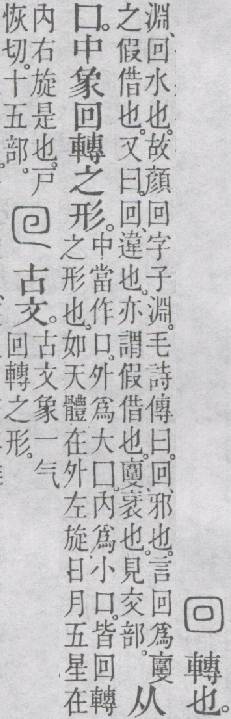 回 轉也。
淵、回水也。故顏回字子淵。毛詩傳曰。回、邪也。言回爲
之假借也。又曰。回、違也。亦謂假借也。衺也。見交部。
从
囗。中象回轉之形。
中當作口。外爲大囗。內爲小口。皆回轉
之形也。如天體在外左旋日月五星在
內右旋是也。戸
恢切。十五部。
古文。
古文象一气
回轉之形。